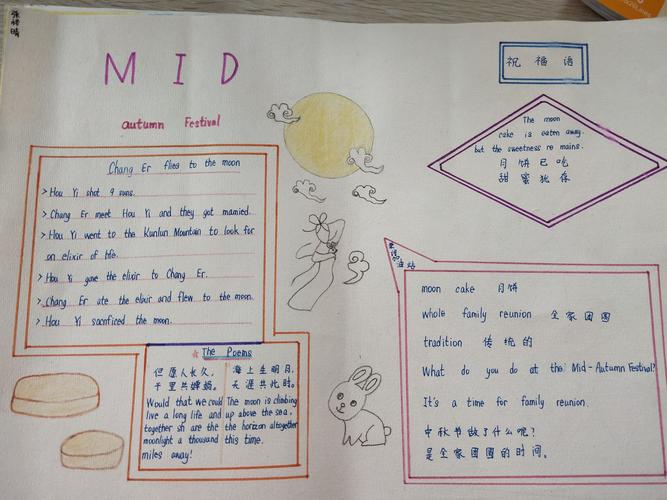 MID
autumn Festival
Chang Er flies to the moon
> Hou Yi shot 9 suns.
> Chang Er meet Hou Yi and they got married.
> Hou Yi went to the Kunlun Mountain to look for
an elixir of life.
> Hou Yi gave the elixir to Chang Er.
> Chang Er ate the elixir and flew to the moon.
> Hou Yi sacrificed the moon.
☆ The Poems
但愿人长久，
千里共婵娟。
Would that we could
live a long life and
together share the
moonlight a thousand
miles away!
海上生明月，
天涯共此时。
The moon is climbing
up above the sea,
the horizon altogether
this time.
祝福语
The moon
cake is eaten away.
but the sweetness re mains.
月饼已吃
甜蜜犹存
moon cake 月饼
whole family reunion 全家团圆
tradition 传统的
What do you do at the Mid-Autumn Festival?
It's a time for family reunion.
中秋节做了什么呢?
是全家团圆的时间。